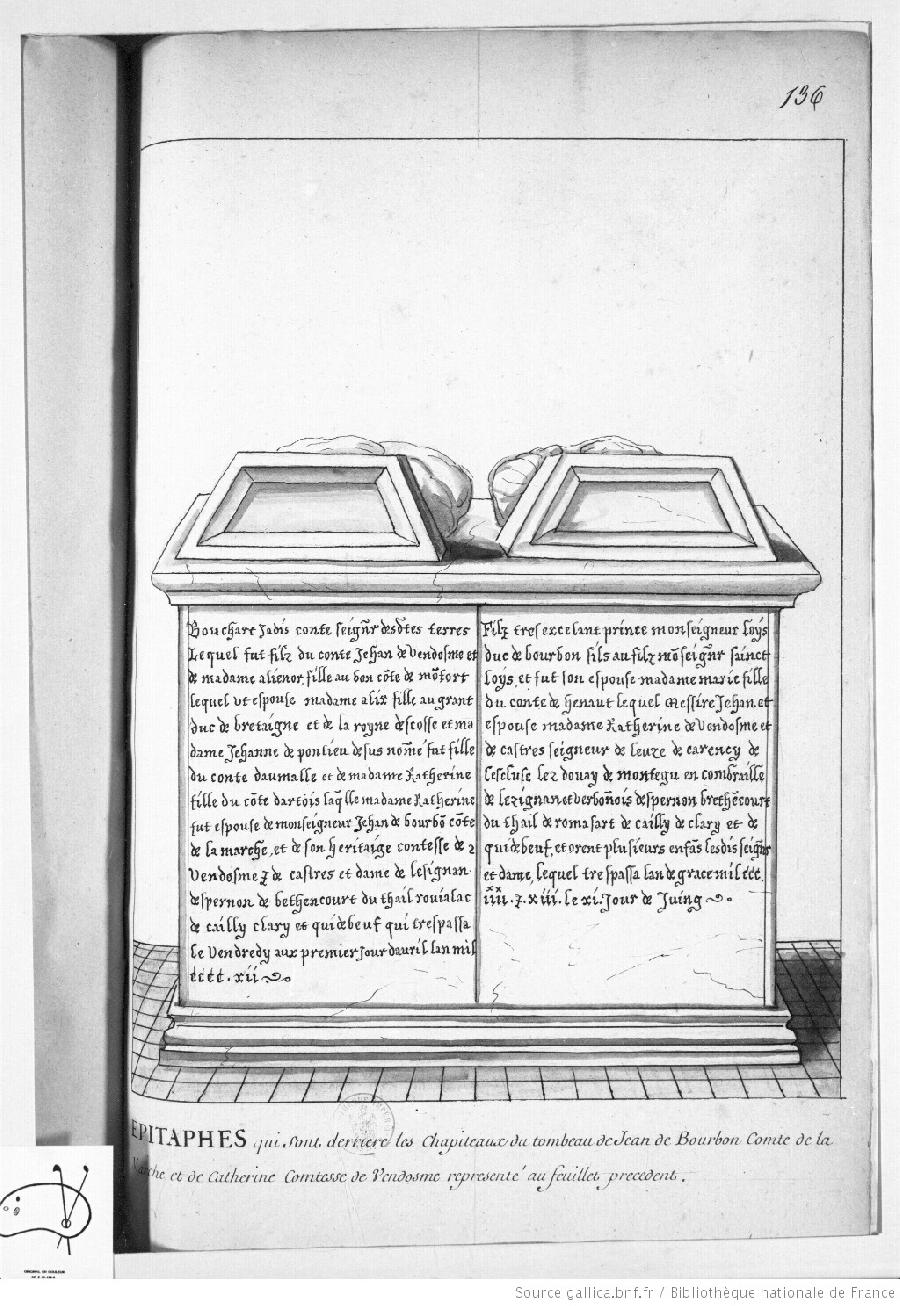 136
Bouchart Jadis conte seignr̄ desdtes terres
Lequel fut filz du conte Jehan de Vendosme et
de madame alienor, fille au bon cōte de mōtfort
lequel ut espouse madame alix fille au grant
duc de bretaigne et de la royne descosse et ma
dame Jehanne de pontieu desus nomē fut fille
du conte daumalle et de madame Katherine
fille du cōte dartois laq̄lle madame Katherine
fut espouse de monseigneur Jehan de bourbō cōte
de la marche, et de son heritaige contesse de
Vendosme ⁊ de castres et dame de lesignan
despernon de bethencourt du thail rouialac
de cailly clary et quidebeuf qui trespassa
le Vendredy aux premier Jour dauril lan mil
cccc. xii
Filz tres excelant prince monseigneur loÿs
duc de bourbon fils au filz mōseignr̄ sainct
loÿs, et fut son espouse madame marie fille
du conte de henaut lequel Messire Jehan et
espouse madame Katherine de Vendosme et
de castres seigneur de leuze de carency de
lescluse lez douay de montegu en combraille
de lezignan et verbonois despernon brethēcourt
du thail de romasart de cailly de clary et de
quidebeuf, et orent plusieurs enfās lesdis seignr̄
et dame, lequel trespassa lan de grace mil ccc.
iiii xx. ⁊. xiii. le xi. Jour de Juing
EPITAPHES qui sont derriere les Chapiteaux du tombeau de Jean de Bourbon Comte de la
Marche et de Catherine Comtesse de Vendosme representé au feuillet precedent.
ORIGINAL EN COULEUR
Source gallica.bnf.fr / Bibliothèque nationale de France